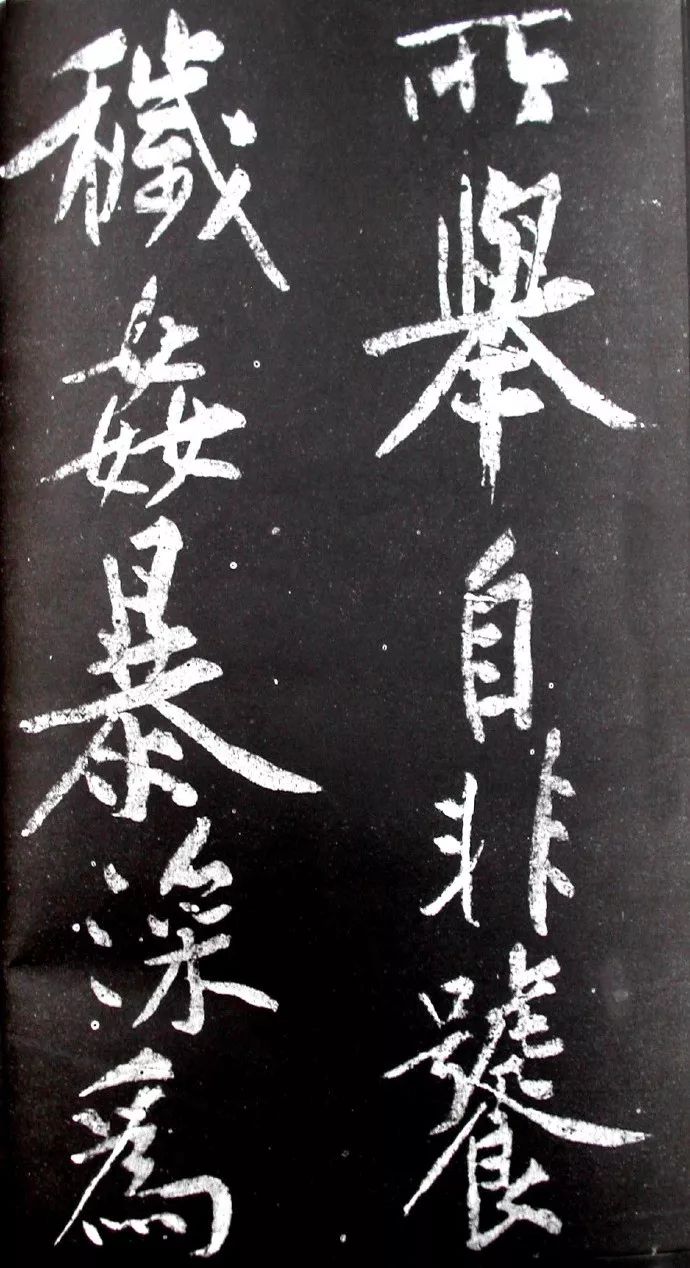 所舉自非饕
穢姦暴深爲